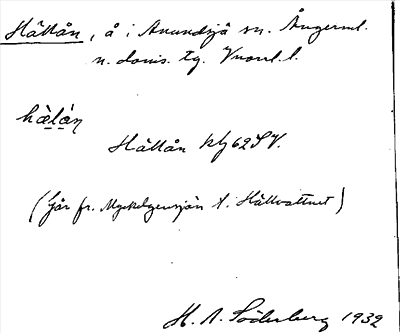 Hällån, å i Anundsjö sn. Ångerml.
n. doms. tg. Vnorrl. l.
hä̀lá̀n
Hällån kbj 62 SV.
(Går fr. Myckelgensjön t. Hällvattnet)
H. A. Söderberg 1932